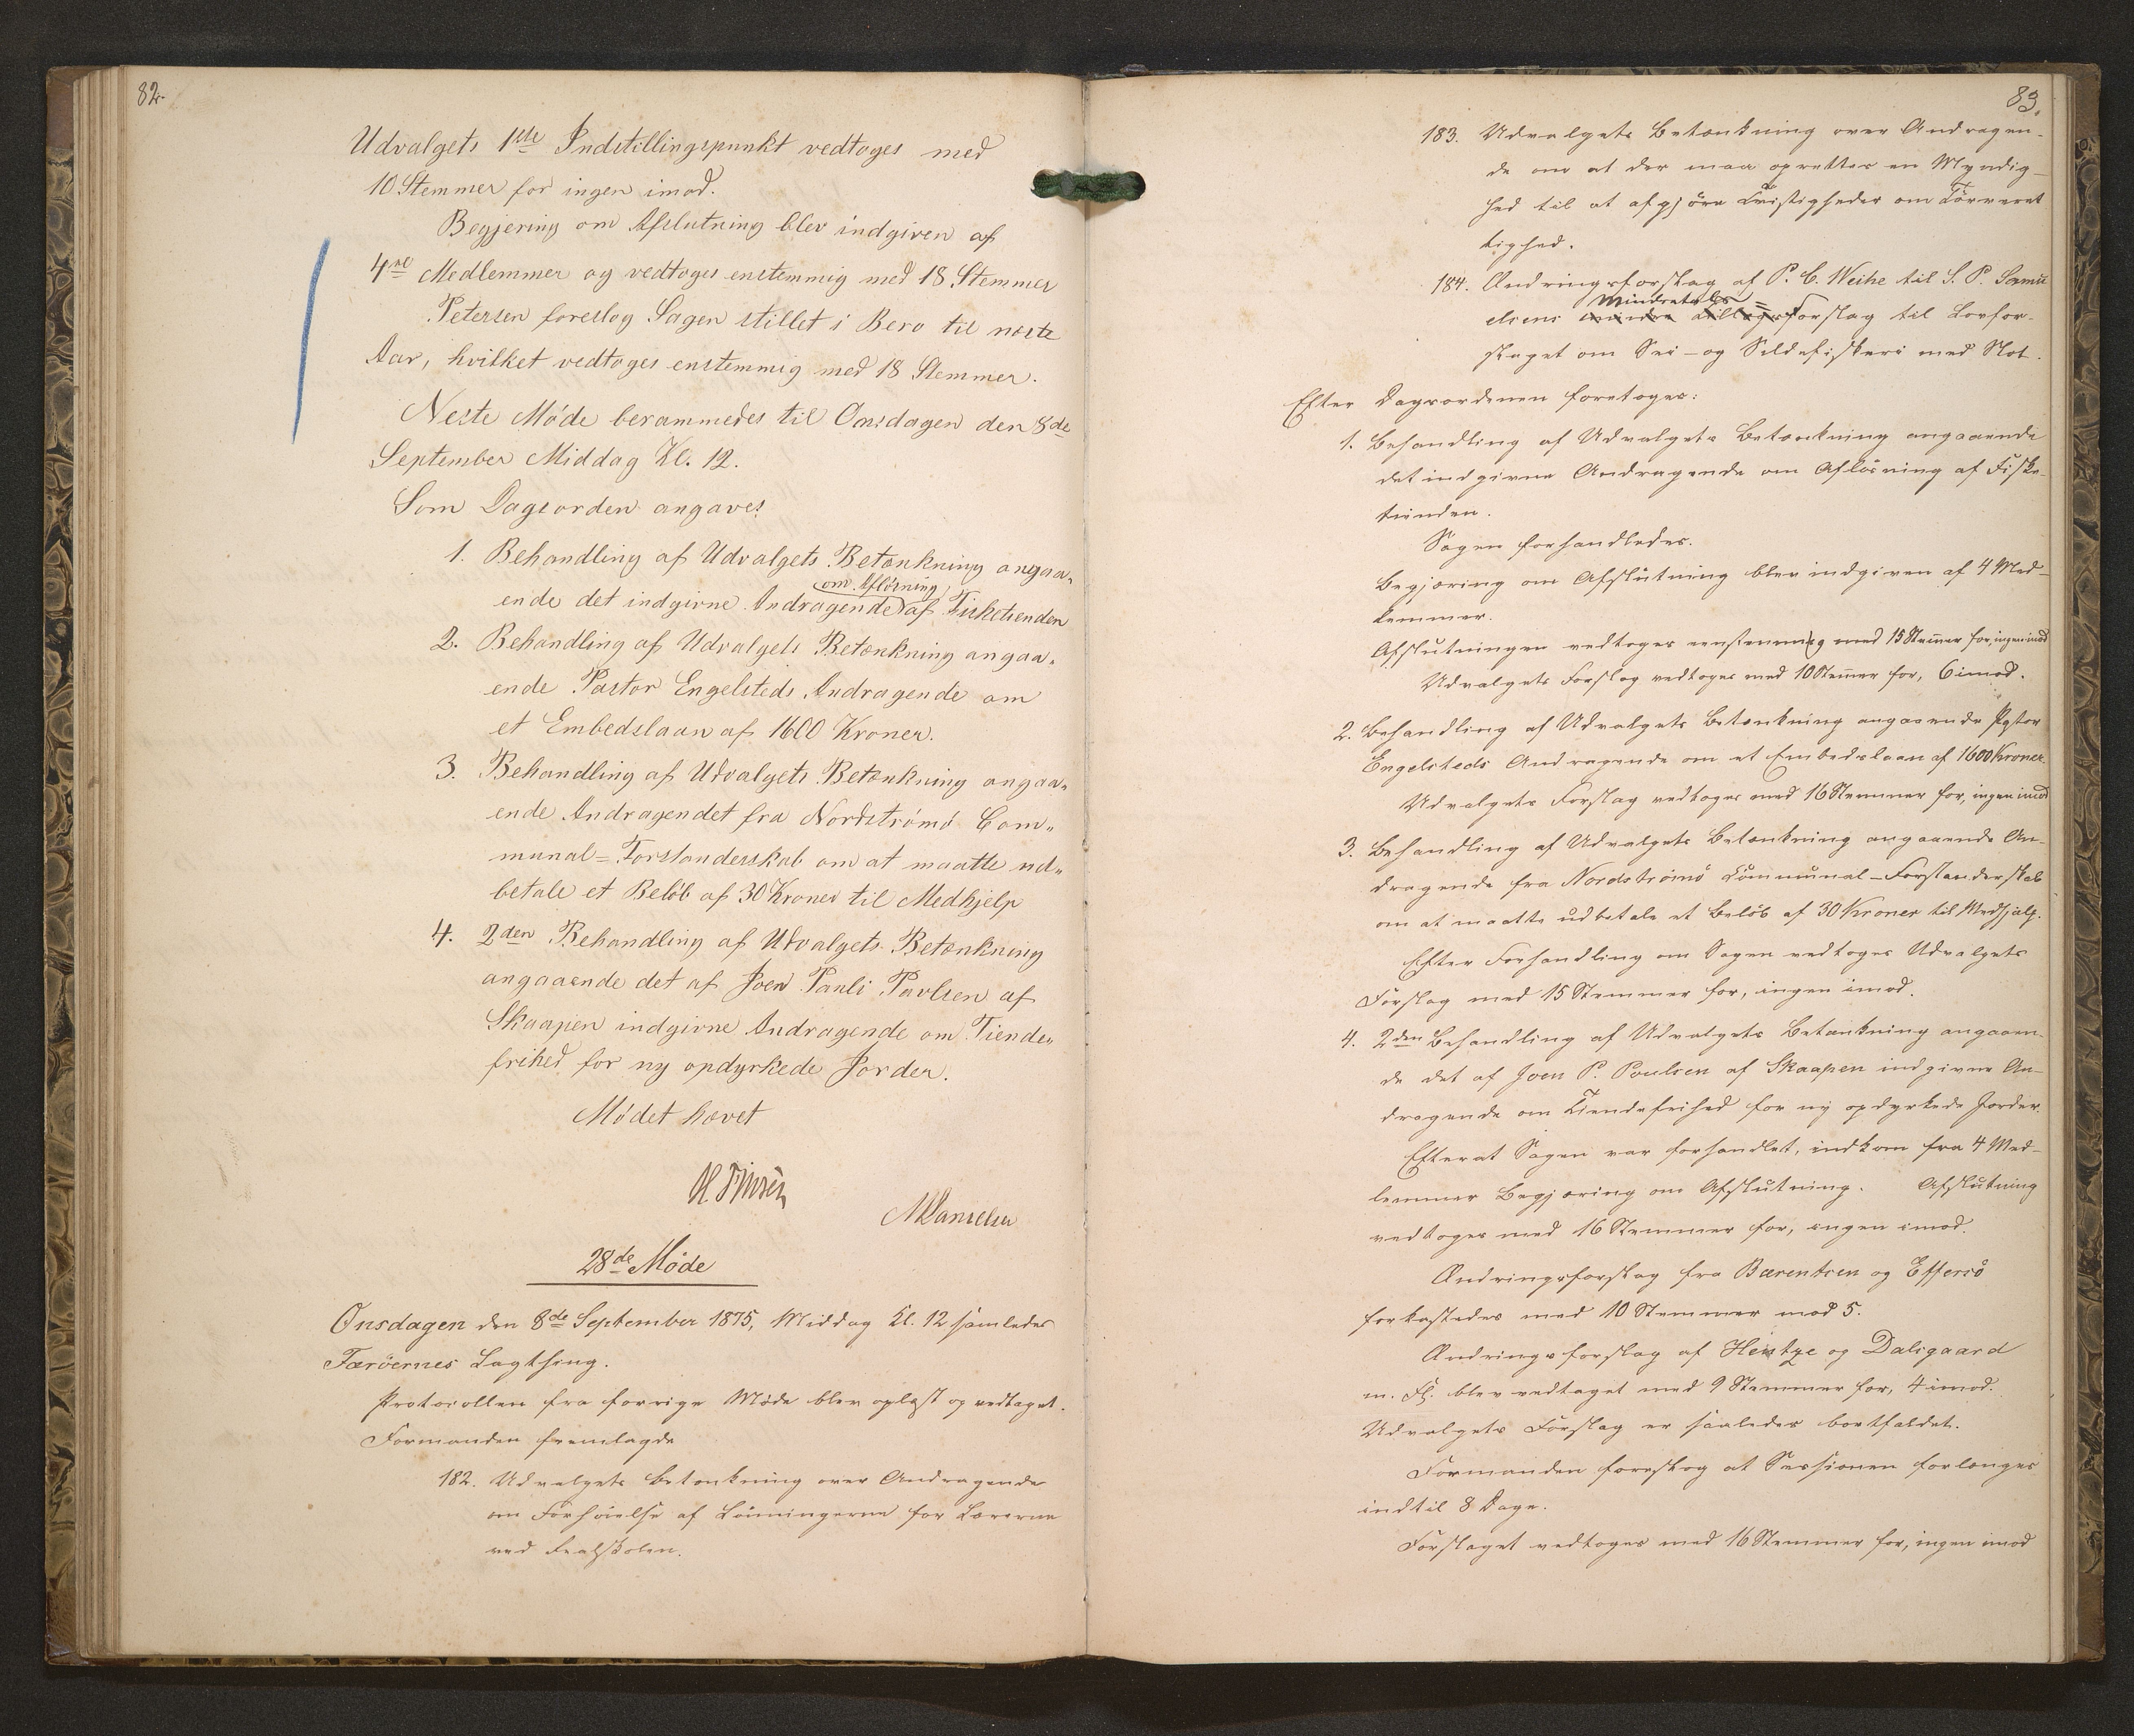 82.
Udvalgets 1ste Indstillingspunkt vedtoges med
10 Stemmer for ingen imod.
Begjering om Afslutning blev indgiven af
4re Medlemmer og vedtoges enstemmig med 18 Stemmer
Petersen foreslog Sagen stillet i Bero til næste
Aar, hvilket vedtoges enstemmig med 18 Stemmer.
Neste Møde berammedes til Onsdagen den 8de
September Middag Kl. 12.
Som Dagsorden angaves
1. Behandling af Udvalgets Betænkning angaa-
om Afløsning
ende det indgivne Andragende af Fisketienden
2. Behandling af Udvalgets Betænkning angaa-
ende Pastor Engelsteds Andragende om
et Embedslaan af 1600 Kroner.
3. Behandling af Udvalgets Betænkning angaa-
ende Andragendet fra Nordstrømø Com-
munal=Forstanderskab om at maatte ud-
betale et Beløb af 30 Kroner til Medhjelp
4. 2den Behandling af Udvalgets Betænkning
angaaende det af Joen Pauli Pavlsen af
Skaapen indgivne Andragende om Tiende-
frihed for ny opdyrkede Jorder.
Mødet hævet
H Finsen
MDanielsen
28de Møde
Onsdagen den 8de September 1875, Middag Kl. 12 samledes
Færöernes Lagthing.
Protocollen fra forrige Møde blev oplæst og vedtaget.
Formanden fremlagde
182. Udvalgets Betænkning over Andragende
om Forhöielse af Lönningerne for Lærerne
ved Realskolen.
83.
183. Udvalgets Betænkning over Andragen-
de om at der maa oprettes en Myndig-
hed til at afgjöre Tvistigheder om Törveret
tighed.
184. Ændringsforslag af P. C. Weihe til S. P. Samu
mindretals =
elsens mindre tillægsforslag til Lovfor-
slaget om Sei- og Sildefiskeri med Not.
Efter Dagsordenen foretoges:
1. Behandling af Udvalgets Betænkning angaaende
det indgivne Andragende om Aflösning af Fiske-
tienden.
Sagen forhandledes.
Begjæring om Afslutning blev indgiven af 4 Med-
lemmer.
Afslutningen vedtoges eenstemmig med 15 Stemer for, ingen imod
Udvalgets Forslag vedtoges med 10 Stemer for, 6 imod.
2. Behandling af Udvalgets Betænkning angaaende Pastor
Engelsteds Andragende om et Embedslaan af 1600 Kroner.
Udvalgets Forslag vedtoges med 16 Stemmer for, ingen imod
3. Behandling af Udvalgets Betænkning angaaende An-
dragende fra Nordströmö Communal-Forstanderskab
om at maatte udbetale et Belöb af 30 Kroner til Medhjælp.
Efter Forhandling om Sagen vedtoges Udvalgets
Forslag med 15 Stemmer for, ingen imod.
4. 2den Behandling af Udvalgets Betænkning angaaen-
de det af Joen P. Poulsen af Skaapen indgivne An-
dragende om Tiendefrihed for ny opdyrkede Jorder.
Efterat Sagen var forhandlet, indkom fra 4 Med-
lemmer Begjæring om Afslutning. Afslutning
vedtoges med 16 Stemmer for, ingen imod.
Ændringsforslag fra Bærentsen og Effersö
forkastedes med 10 Stemmer mod 5.
Ændringsforslag af Hentze og Dalsgaard
m. Fl. blev vedtaget med 9 Stemmer for, 4 imod.
Udvalgets Forslag er saaledes bortfaldet.
Formanden foreslog at Sessionen forlænges
indtil 8 Dage.
Forslaget vedtoges med 16 Stemmer for, ingen imod